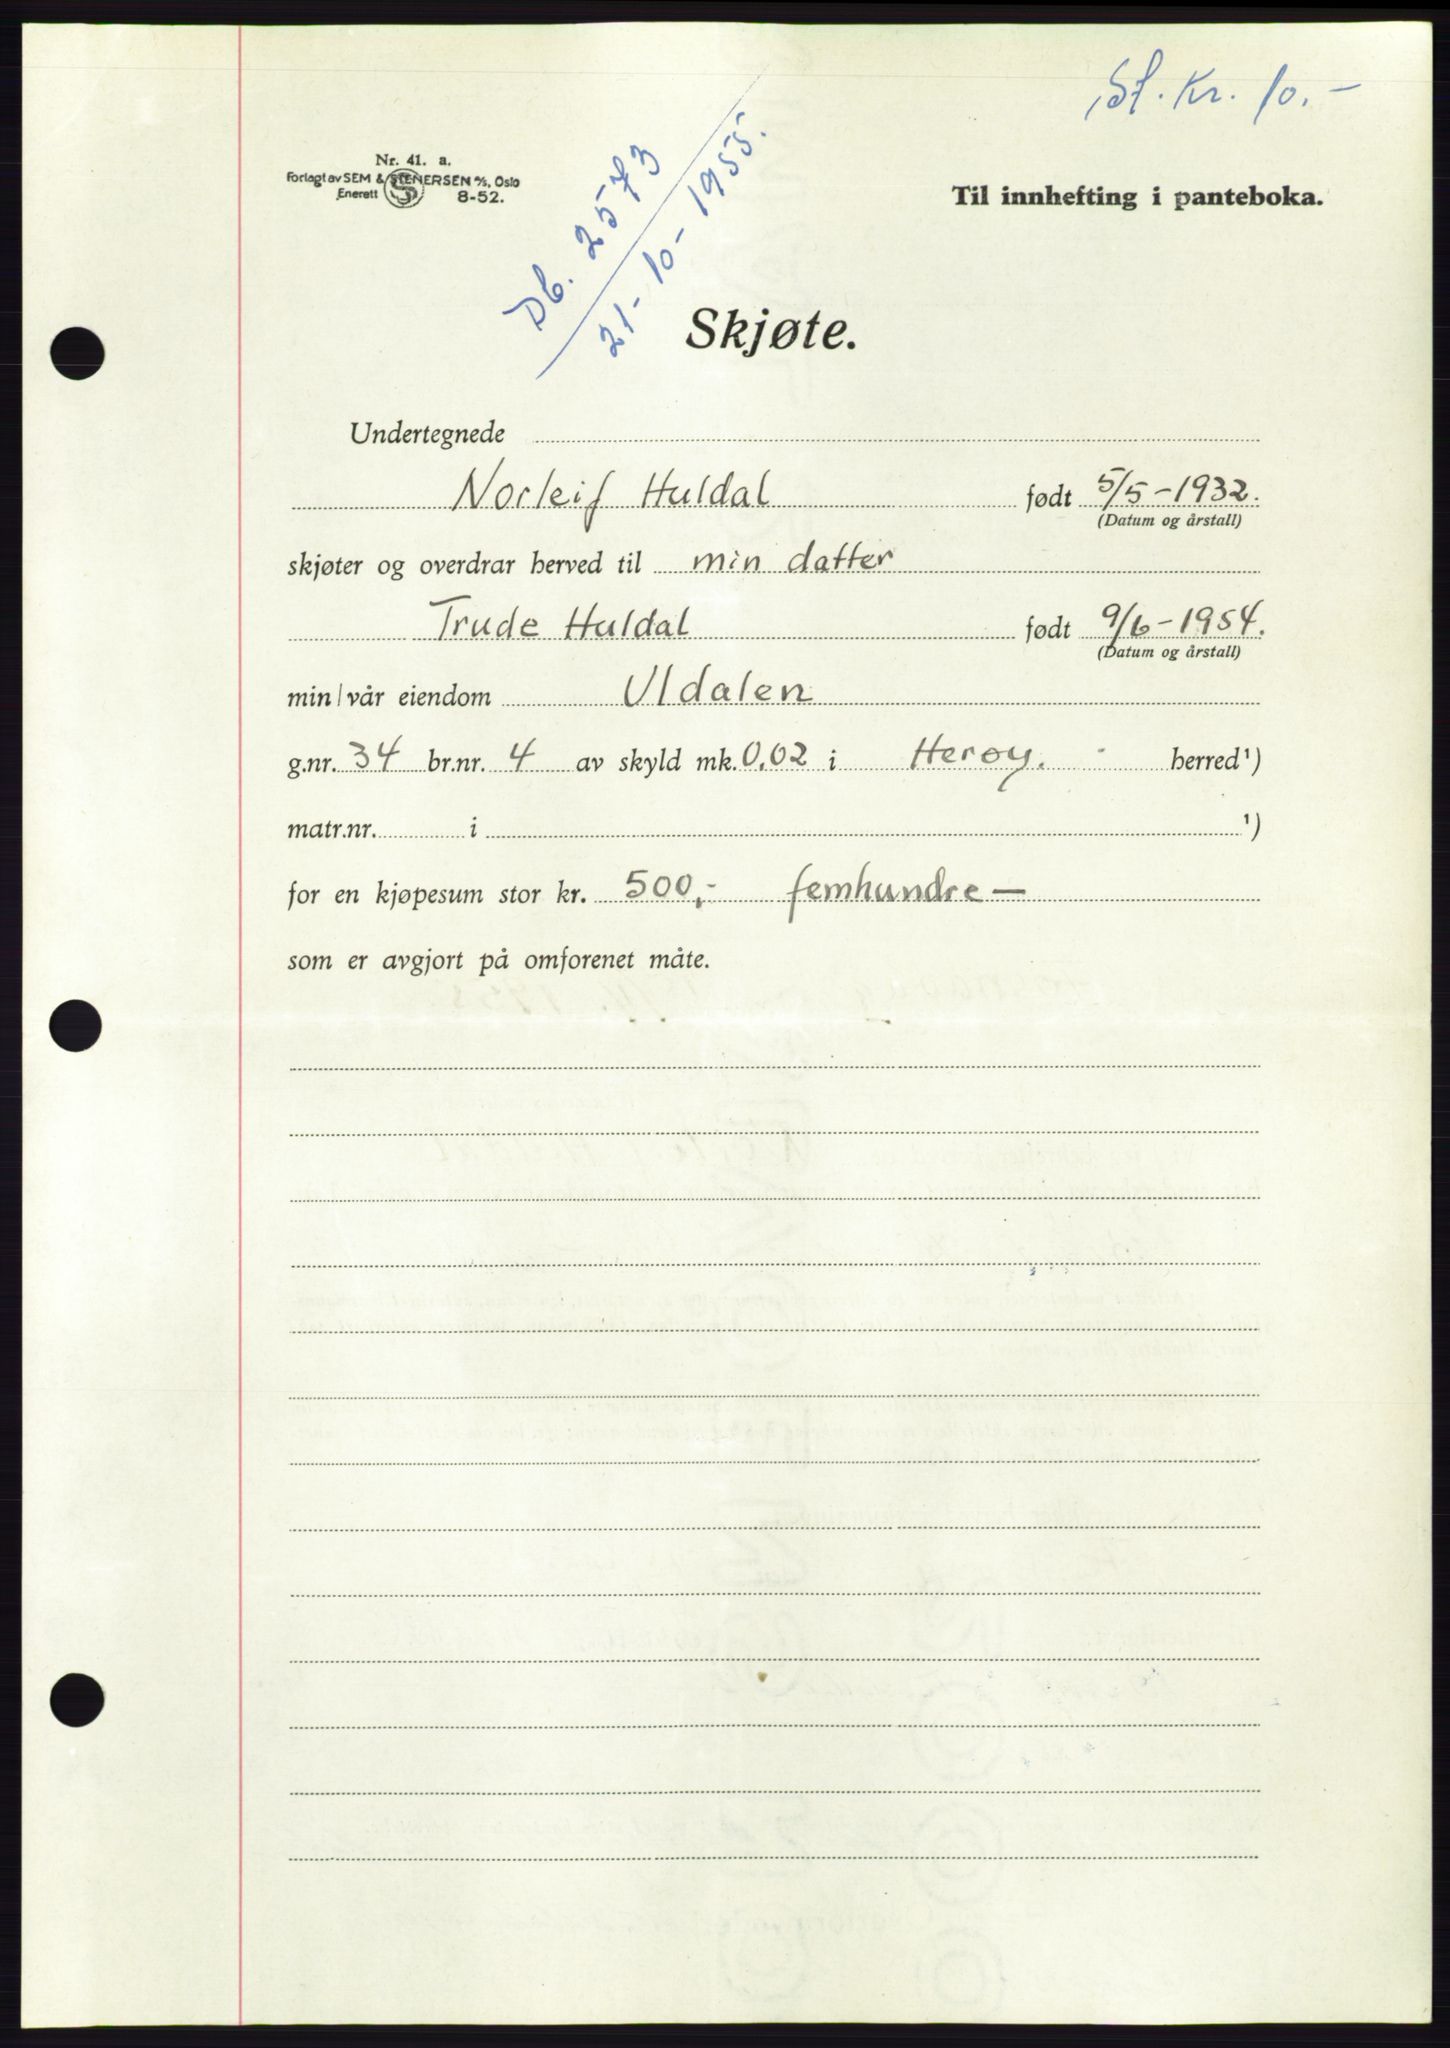 St. Kr. 10.-
Nr. 41. a.
Forlagt av SEM & STENERSEN A/S, Oslo
Enerett 8-52.
Db. 2573
21-10-1955.
Til innhefting i panteboka.
Skjøte.
Undertegnede
Norleif Huldal født 5/5-1932.
(Datum og årstall)
skjøter og overdrar herved til min datter
Trude Huldal født 9/6-1954.
(Datum og årstall)
min/vår eiendom Uldalen
g.nr. 34 br.nr. 4 av skyld mk. 0.02 i Herøy. herred¹)
matr.nr. i ¹)
for en kjøpesum stor kr. 500,- femhundre —
som er avgjort på omforenet måte.